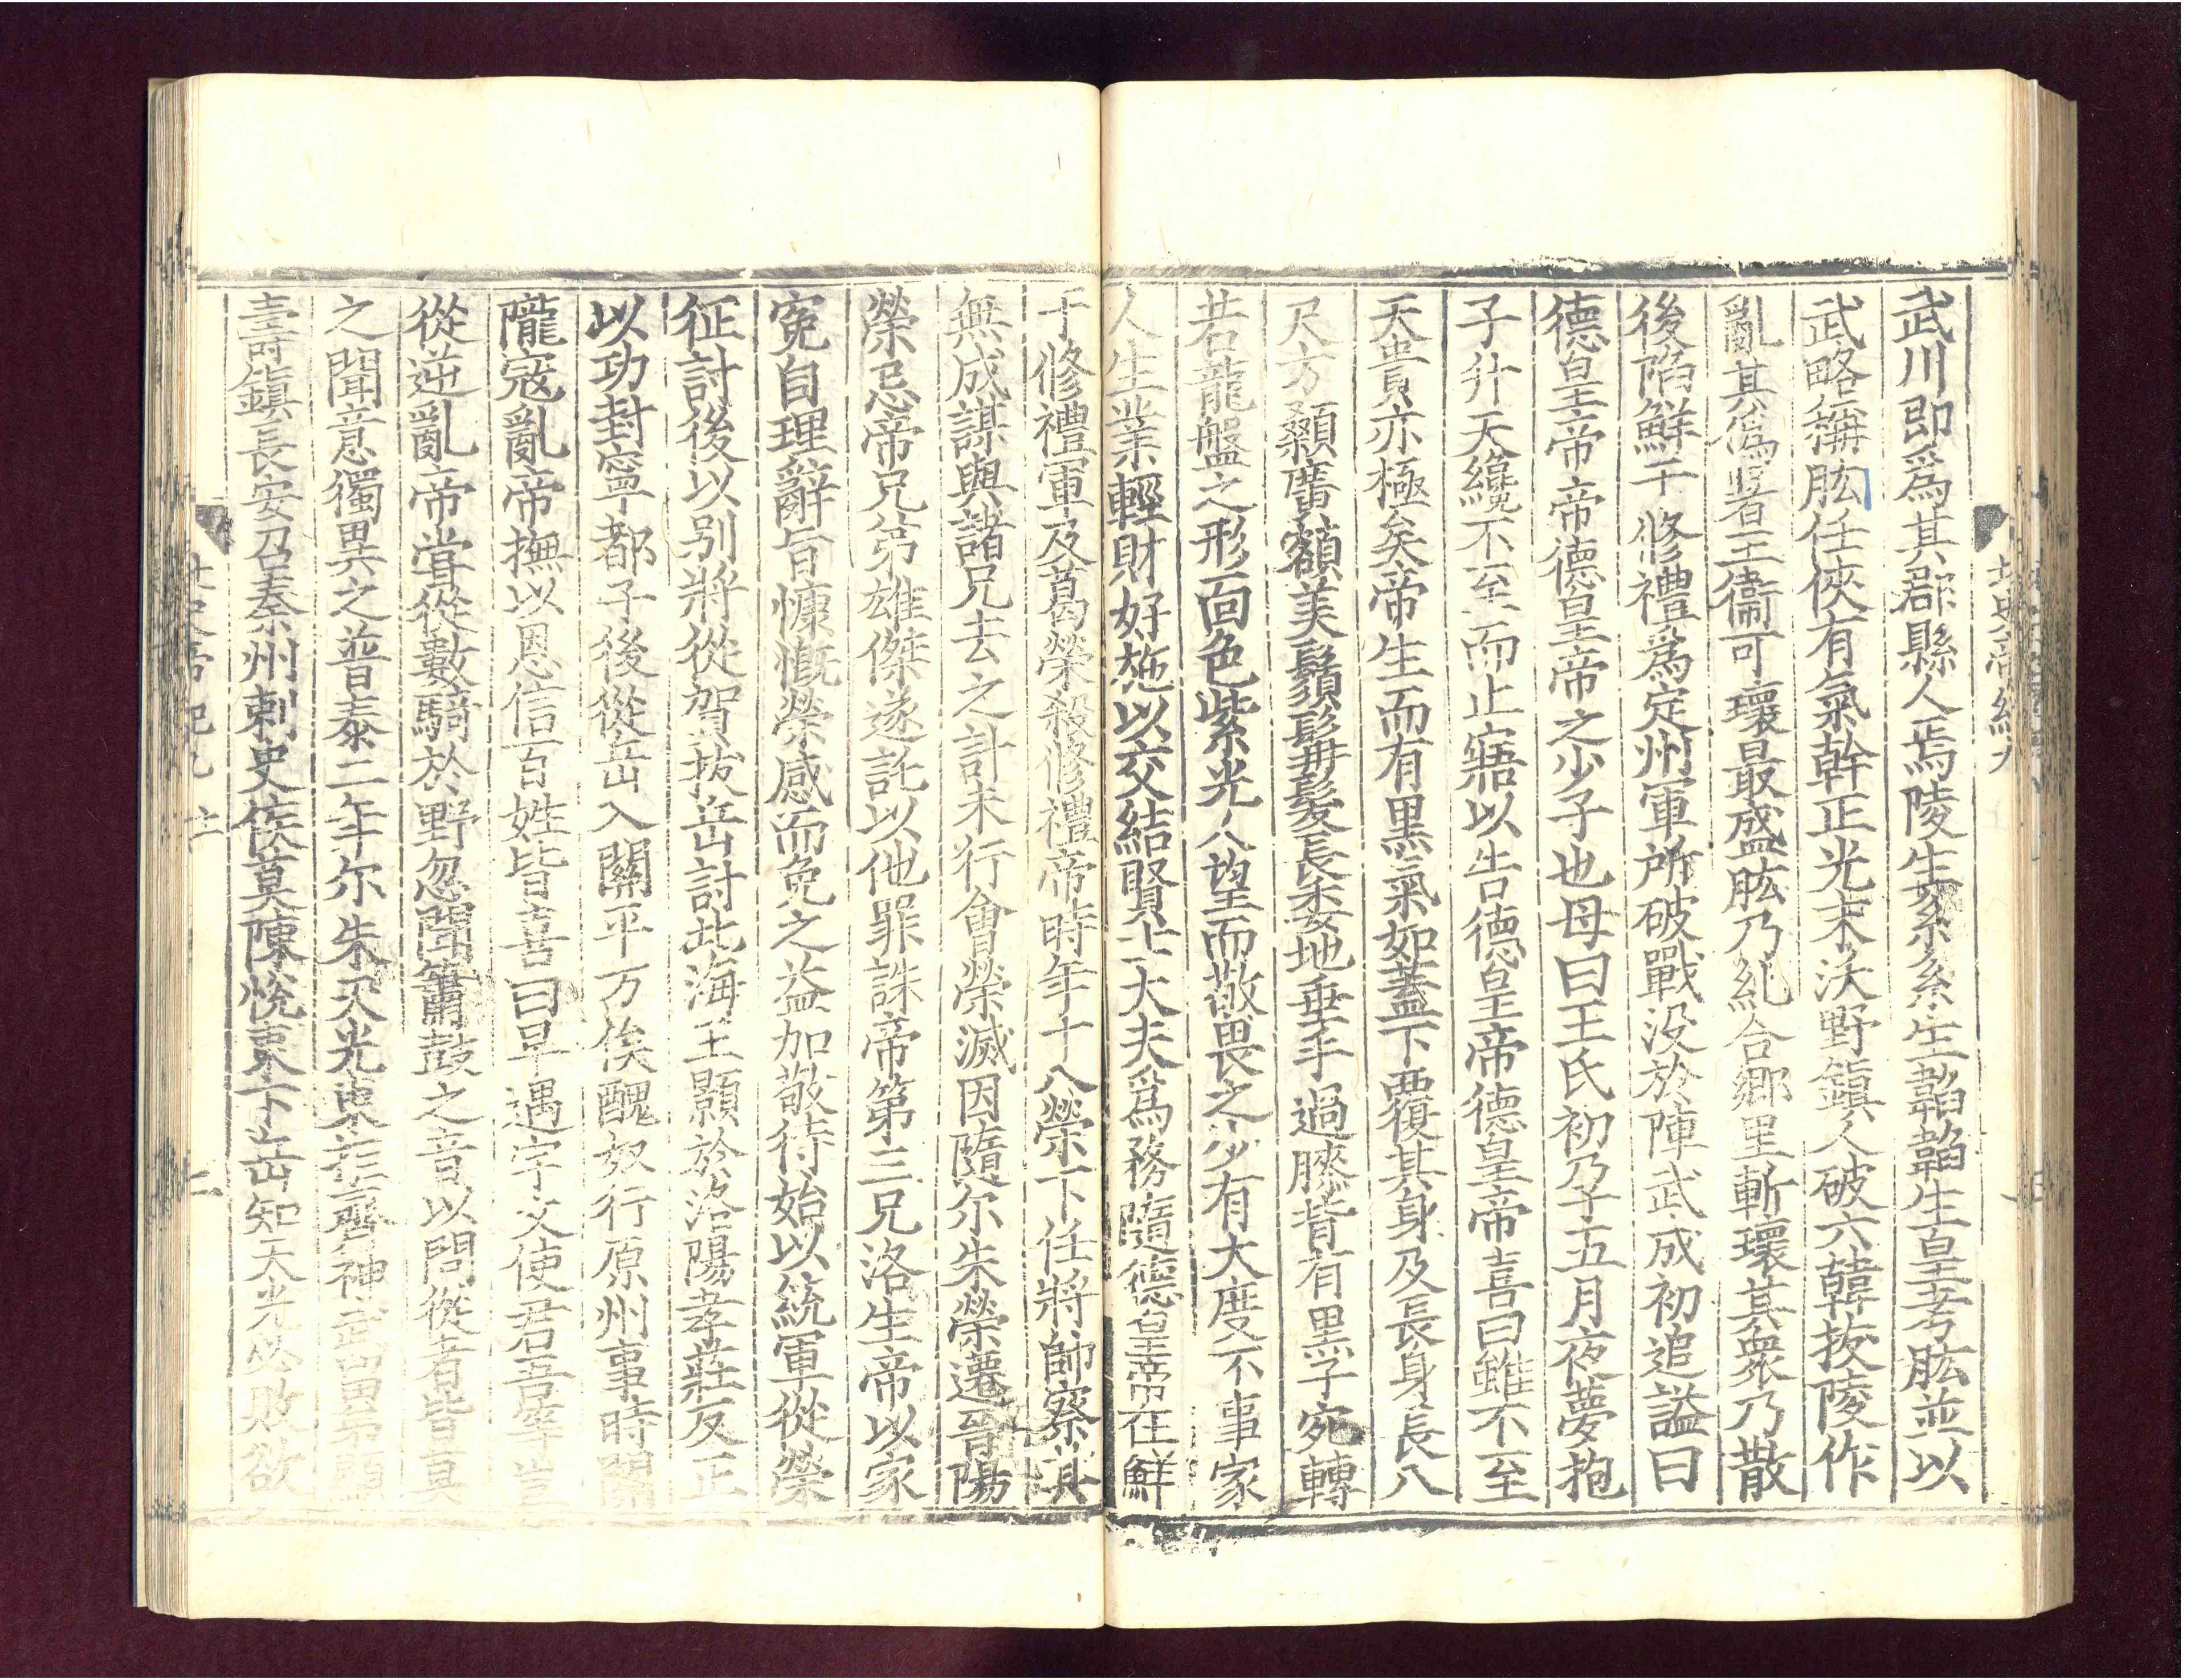 武川即爲其郡縣人焉陵生系系生韜韜生皇考肱並以
武略稱肱任俠有氣幹正光末沃野鎮人破六韓拔陵作
亂其僞署王衞可瓌最盛肱乃糺合鄉里斬瓌其衆乃散
後陷鮮于修禮爲定州軍所破戰没於陣武成初追謚曰
德皇帝帝德皇帝之少子也母曰王氏初孕五月夜夢抱
子升天纔不至而止寤以告德皇帝德皇帝喜曰雖不至
天貴亦極矣帝生而有黑氣如蓋下覆其身及長身長八
尺方顙廣額美鬚髯髮長委地垂手過膝背有黑子宛轉
若龍盤之形面色紫光人望而敬畏之少有大度不事家
人生業輕財好施以交結賢士大夫爲務隨德皇帝在鮮
于修禮軍及葛榮殺修禮帝時年十八榮下任將帥察其
無成謀與諸兄去之計未行會榮滅因隨尔朱榮遷晉陽
榮忌帝兄弟雄傑遂託以他罪誅帝第三兄洛生帝以家
寃自理辭旨慷慨榮感而免之益加敬待始以統軍從榮
征討後以别將從賀拔岳討北海王顥於洛陽孝莊反正
以功封寧都子後從岳入關平万俟醜奴行原州事時關
隴寇亂帝撫以恩信百姓皆喜曰早遇宇文使君吾等豈
從逆亂帝甞從數騎於野忽聞簫鼓之音以問從者皆莫
之聞意獨異之普泰二年尔朱天光東拒齊神武留弟顯
壽鎮長安召秦州刺史侯莫陳悅東下岳知天光必敗欲
北史帝紀九